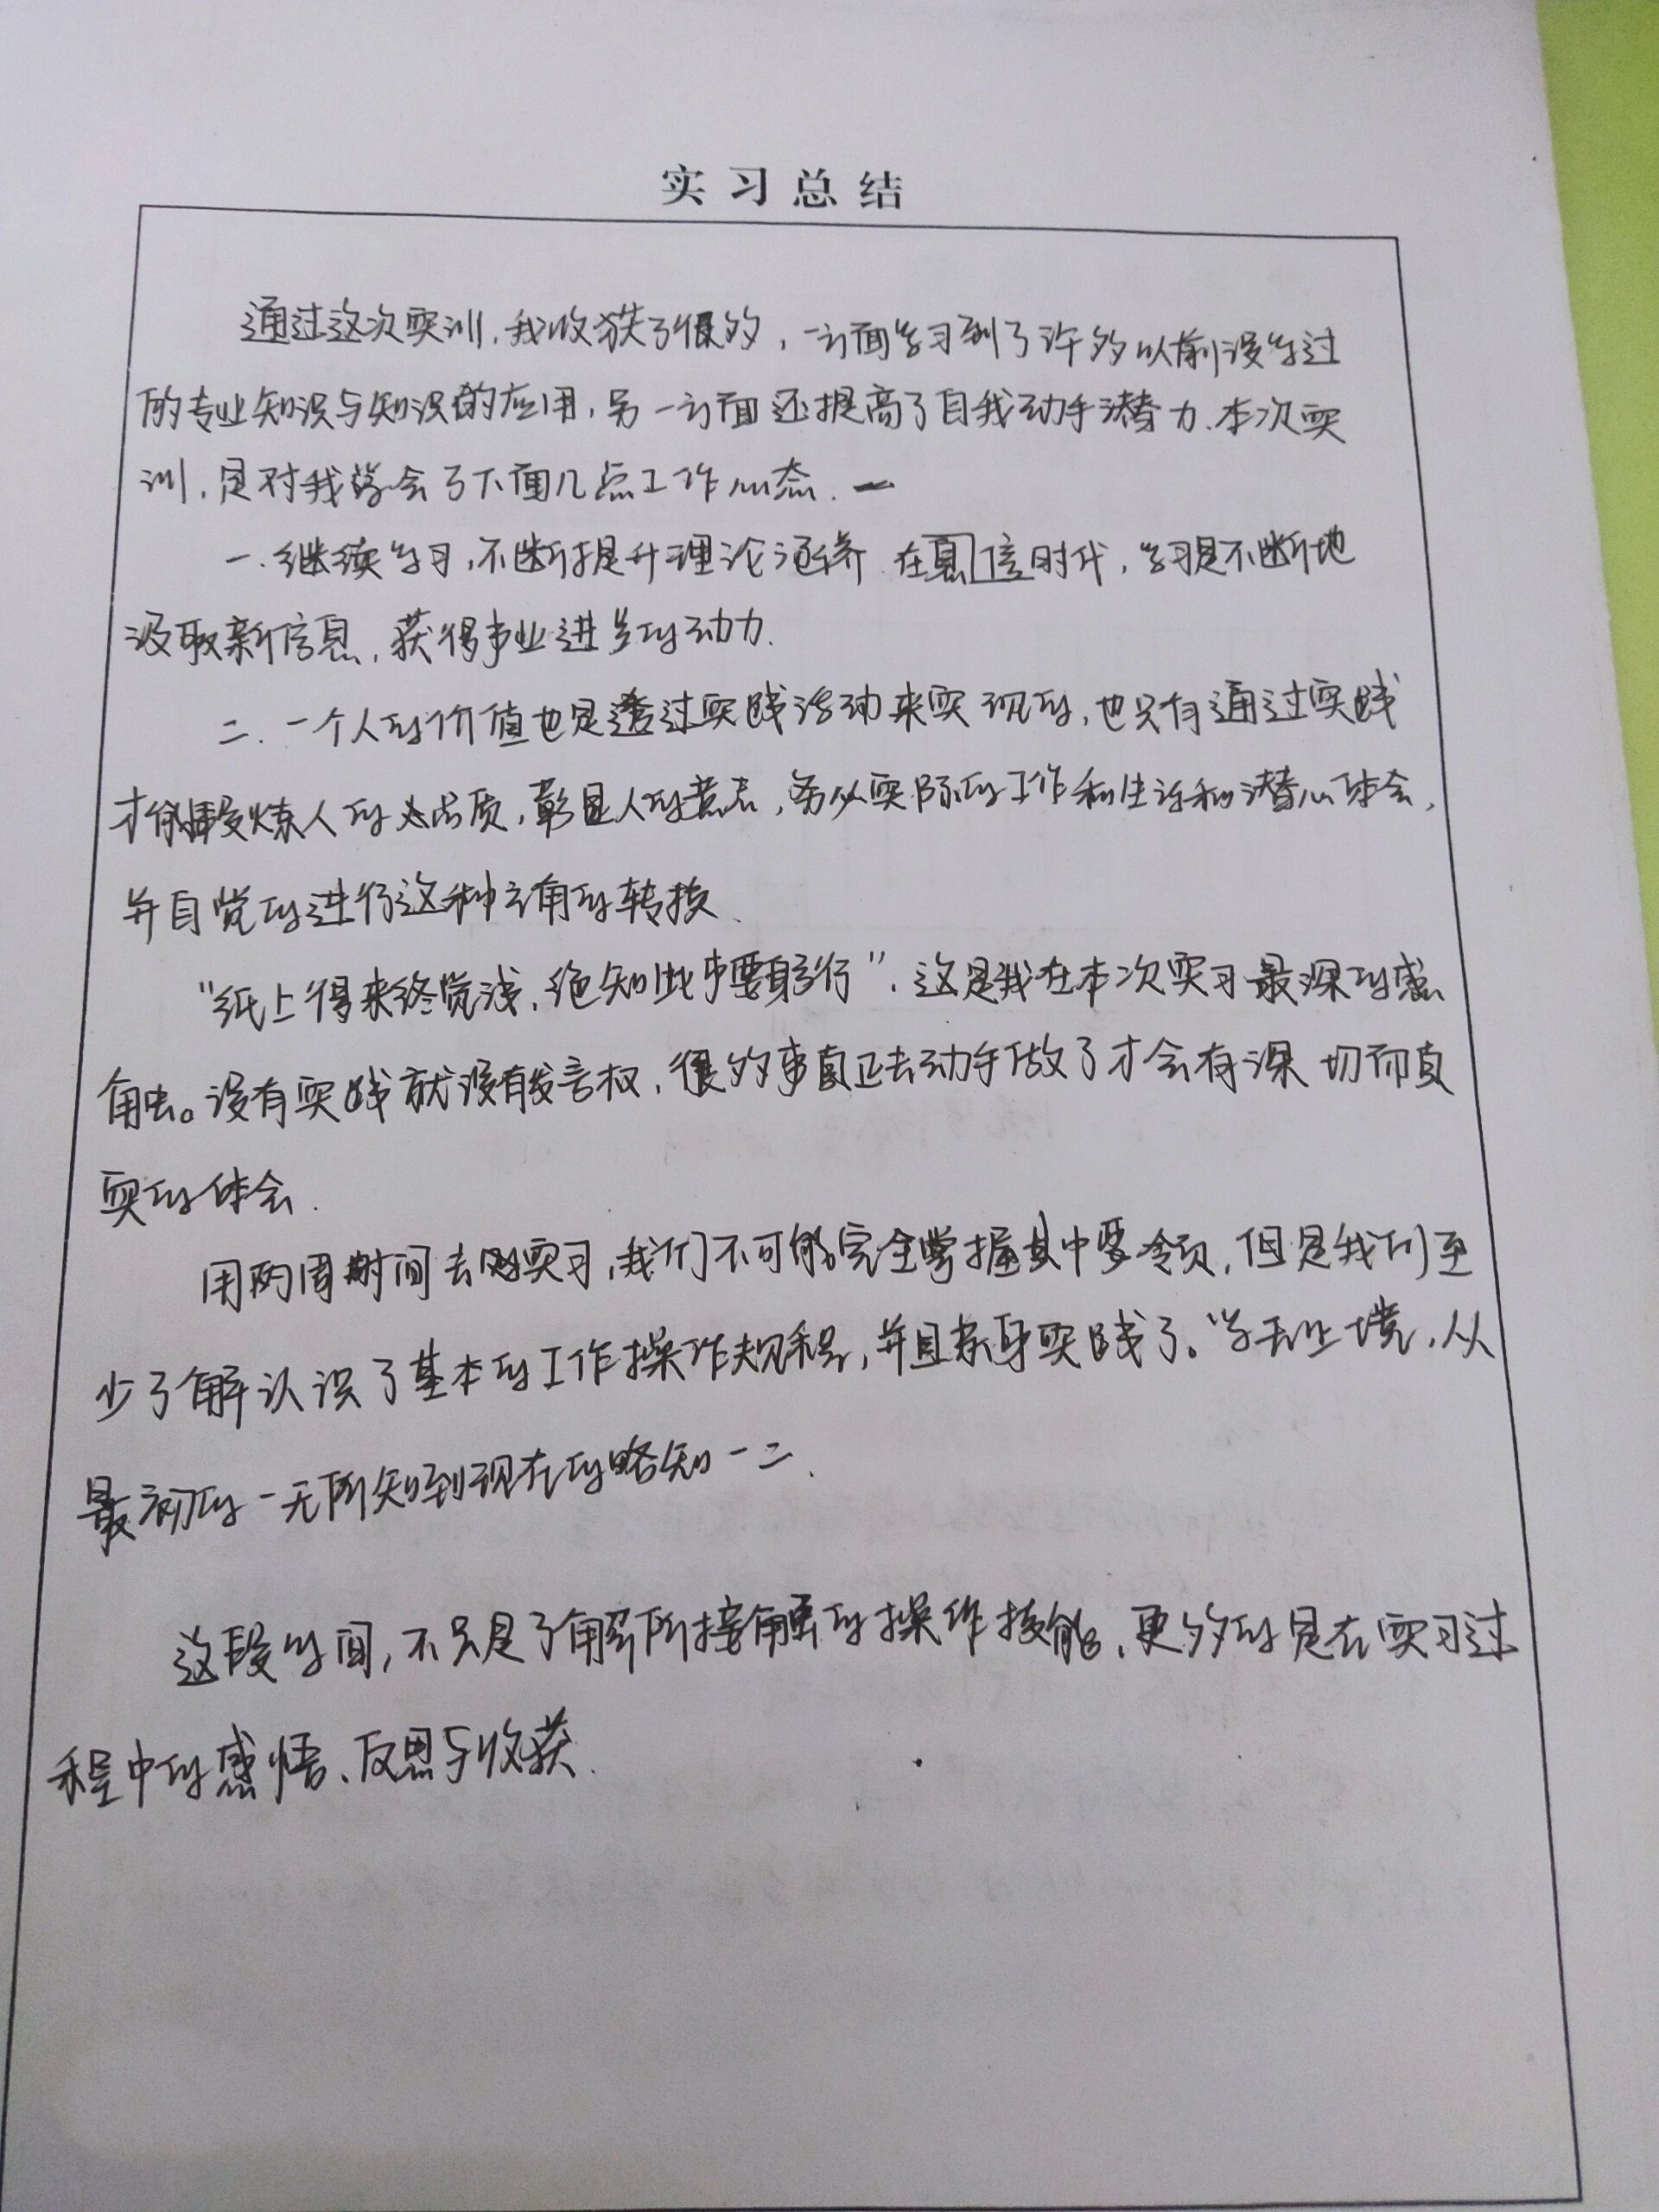 实习总结
通过这次实训,我收获了很多,一方面学习到了许多以前没学过
的专业知识与知识的应用,另一方面还提高了自我动手潜力.本次实
训,是对我学会了下面几点工作心态.一
一.继续学习,不断提升理论涵养.在息信时代,学习是不断地
汲取新信息,获得事业进步的动力.
二.一个人的价值也是透过实践活动来实现的,也只有通过实践
才能锻炼人的品质,彰显人的意志,务从实际的工作和生活和潜心体会,
并自觉的进行这种角的转换.
"纸上得来终觉浅,绝知此事要躬行".这是我在本次实习最深的感
触。没有实践就没有发言权,很多事真正去动手做了才会有深切而真
实的体会.
用两周时间去实习,我们不可能完全掌握其中要领,但是我们至
少了解认识了基本的工作操作规程,并且亲身实践了。学无止境,从
最初的一无所知到现在的略知一二.
这段学间,不只是了解所接触的操作技能,更多的是在实习过
程中的感悟、反思与收获.